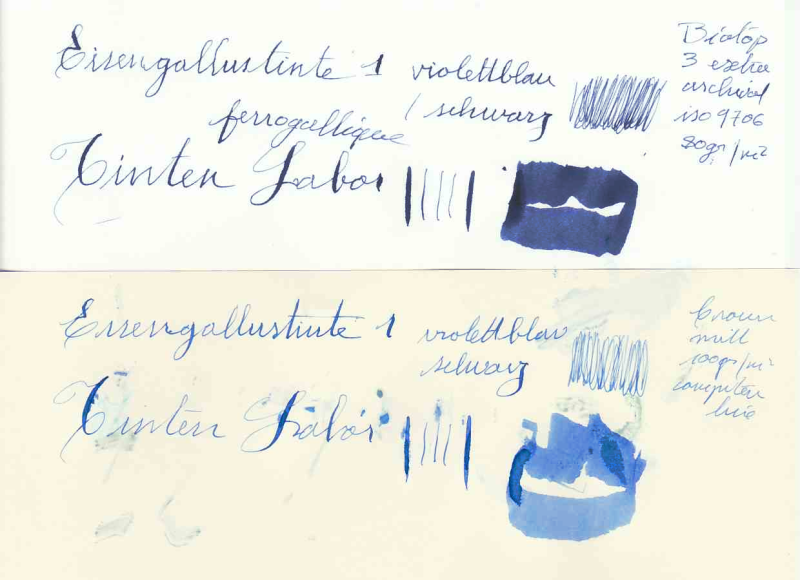 Eisengallustinte 1 violettblau
/ schwarz
ferrogallique
Tinten Labor
Biotop
3 extra
archival
iso 9706
80gr/m²
Eisengallustinte 1 violettblau
schwarz
Tinten Labor
Crown
mill
100gr/m²